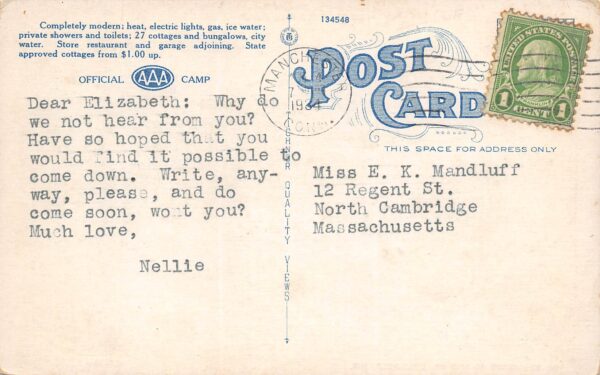 Completely modern; heat, electric lights, gas, ice water;
private showers and toilets; 27 cottages and bungalows, city
water. Store restaurant and garage adjoining. State
approved cottages from $1.00 up.
OFFICIAL AAA CAMP
Dear Elizabeth: Why do
we not hear from you?
Have so hoped that you
would find it possible to
come down. Write, any-
way, please, and do
come soon, wont you?
Much love,
Nellie
134548
1934
CONN
POST
CARD
THIS SPACE FOR ADDRESS ONLY
UNITED STATES POSTAGE
1 CENT 1
Miss E. K. Mandluff
12 Regent St.
North Cambridge
Massachusetts
QUALITY VIEWS